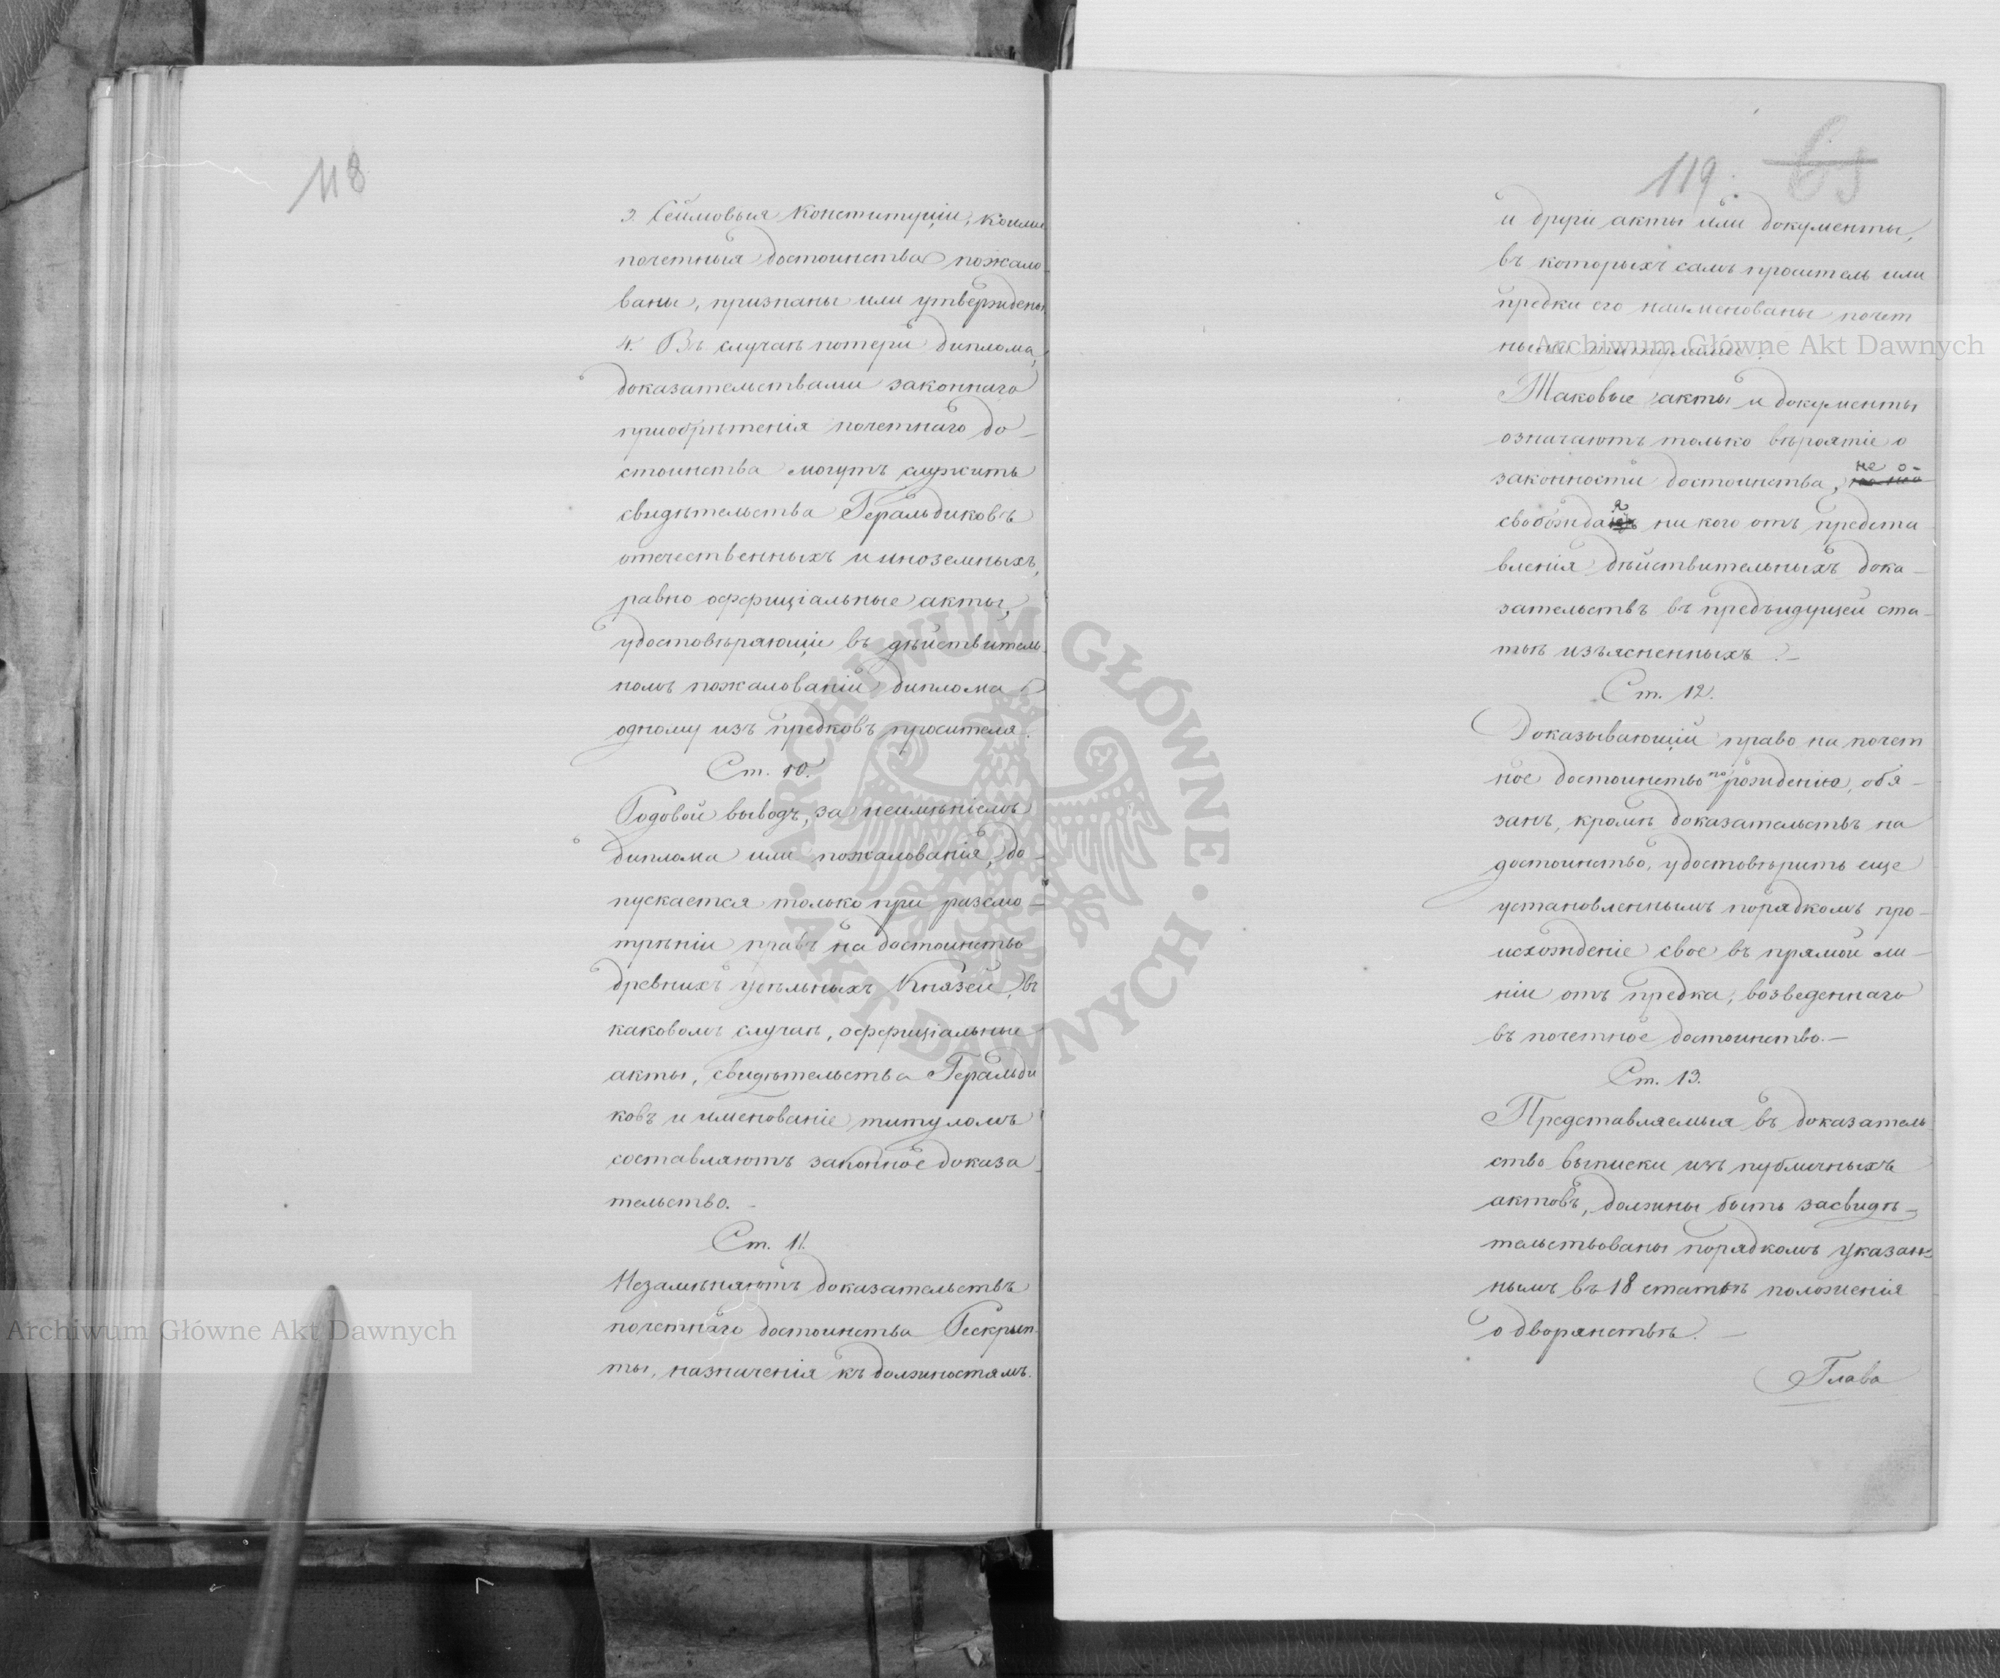 118
3. Сеймовыя Конституціи, коими
почетныя достоинства пожало-
ваны, признаны или утверждены.
4. Въ случаѣ потери диплома,
доказательствами законнаго
пріобрѣтенія почетнаго до-
стоинства могутъ служить
свидѣтельства Геральдиковъ
отечественныхъ и иноземныхъ,
равно оффиціальные акты,
удостовѣряющіе въ дѣйствитель-
номъ пожалованіи диплома
одному изъ предковъ просителя.
Ст. 10.
Родовой выводъ, за неимѣніемъ
диплома или пожалованія, до-
пускается только при разсмо-
трѣніи правъ на достоинство
древнихъ удѣльныхъ Князей, въ
каковомъ случаѣ, оффиціальные
акты, свидѣтельства Геральди
ковъ и именованіе титуломъ
составляютъ законное доказа-
тельство. -
Ст. 11.
Незамѣняютъ доказательствъ
почетнаго достоинства Рескрып-
ты, назначенія къ должностямъ.
119.
и другіе акты или документы,
въ которыхъ самъ проситель или
предки его наименованы почет
ными титулами.
Таковые акты и документы
означаютъ только вѣроятіе о
законности достоинства, не о-
свобождая ни кого отъ предста
вленія дѣйствительныхъ дока-
зательствъ въ предъидущей ста-
тьѣ изъясненныхъ. -
Ст. 12.
Доказывающій право на почет
ное достоинство по рожденію, обя-
занъ, кромѣ доказательствъ на
достоинство, удостовѣрить еще
установленнымъ порядкомъ про-
исхожденіе свое въ прямой ли-
ніи отъ предка, возведеннаго
въ почетное достоинство. -
Ст. 13.
Представляемыя въ доказатель
ство выписки изъ публичныхъ
актовъ, должны быть засвидѣ-
тельствованы порядкомъ указан-
нымъ въ 18 статьѣ положенія
о дворянствѣ. -
Глава
Archiwum Główne Akt Dawnych
Archiwum Główne Akt Dawnych
ARCHIWUM GŁÓWNE · AKT DAWNYCH ·